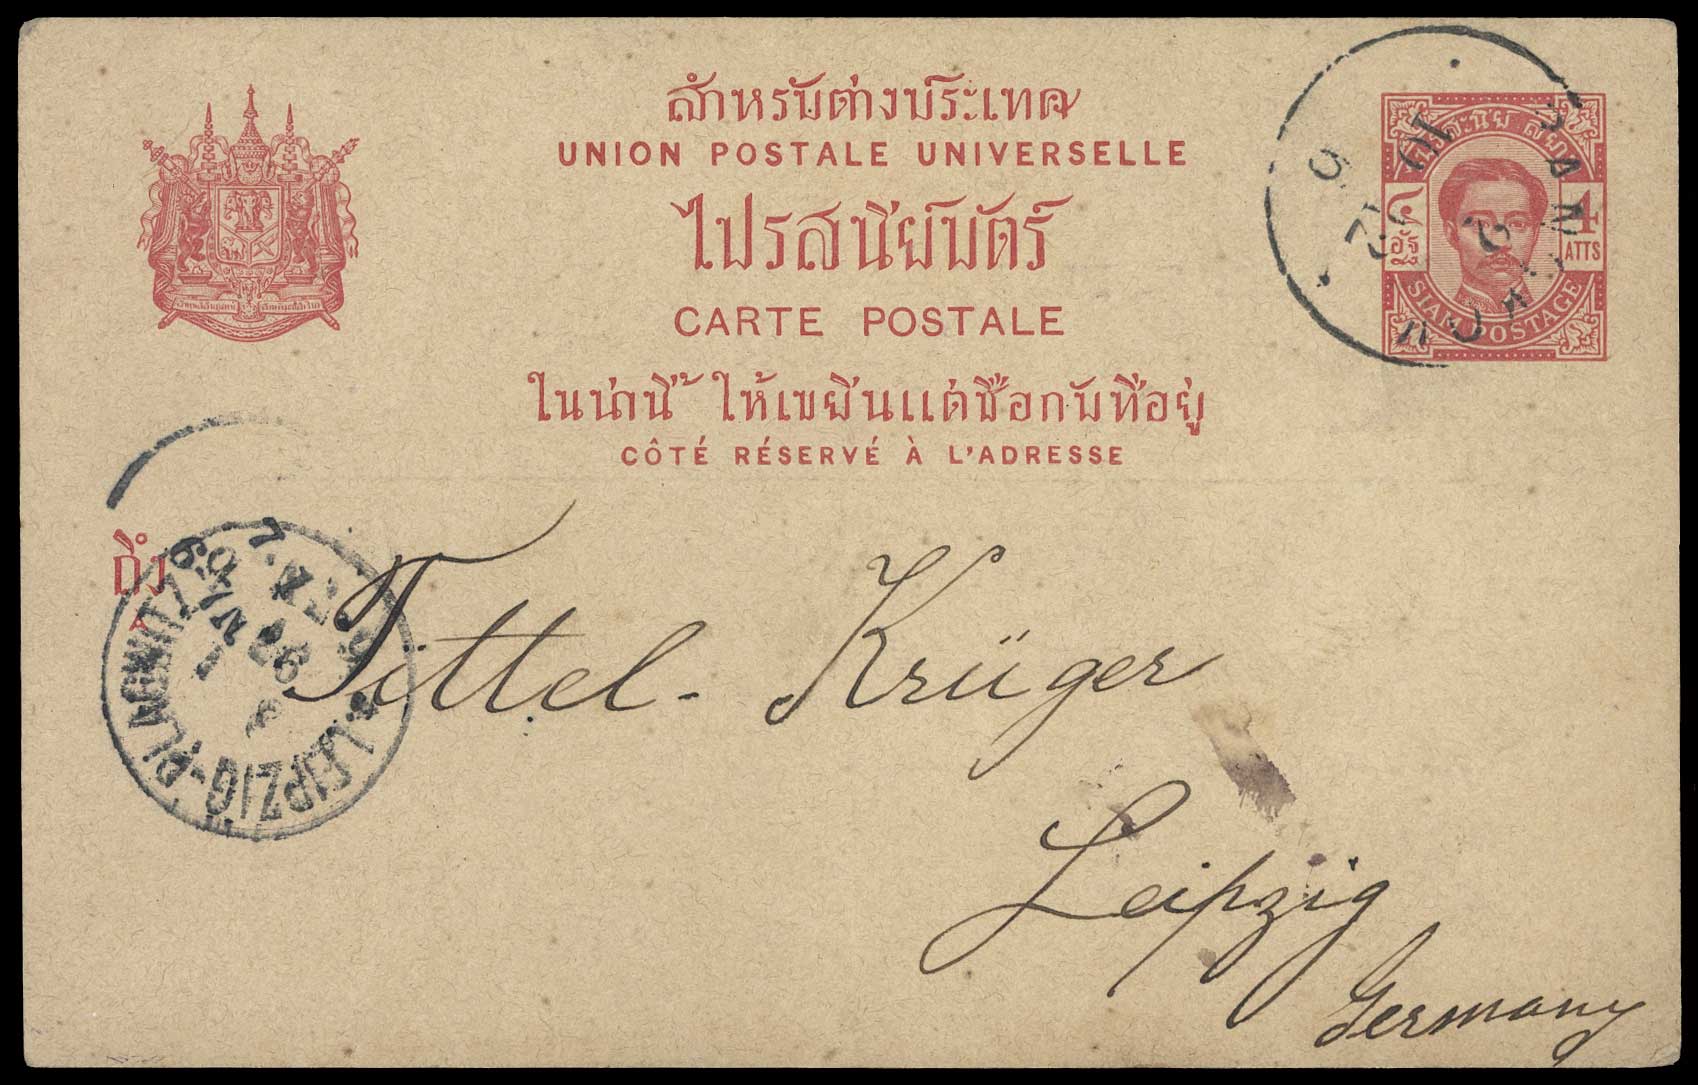 สำหรับต่างประเทศ
UNION POSTALE UNIVERSELLE
ไปรสนียบัตร์
CARTE POSTALE
ในน่านี้ ให้เขยีนแต่ชื่อกับที่อยู่
CÔTÉ RÉSERVÉ À L'ADRESSE
๔ อัฐ
4 ATTS
SIAM POSTAGE
ถึง
LEIPZIG-PLAGWITZ
Tittel-Krüger
Leipzig
Germany